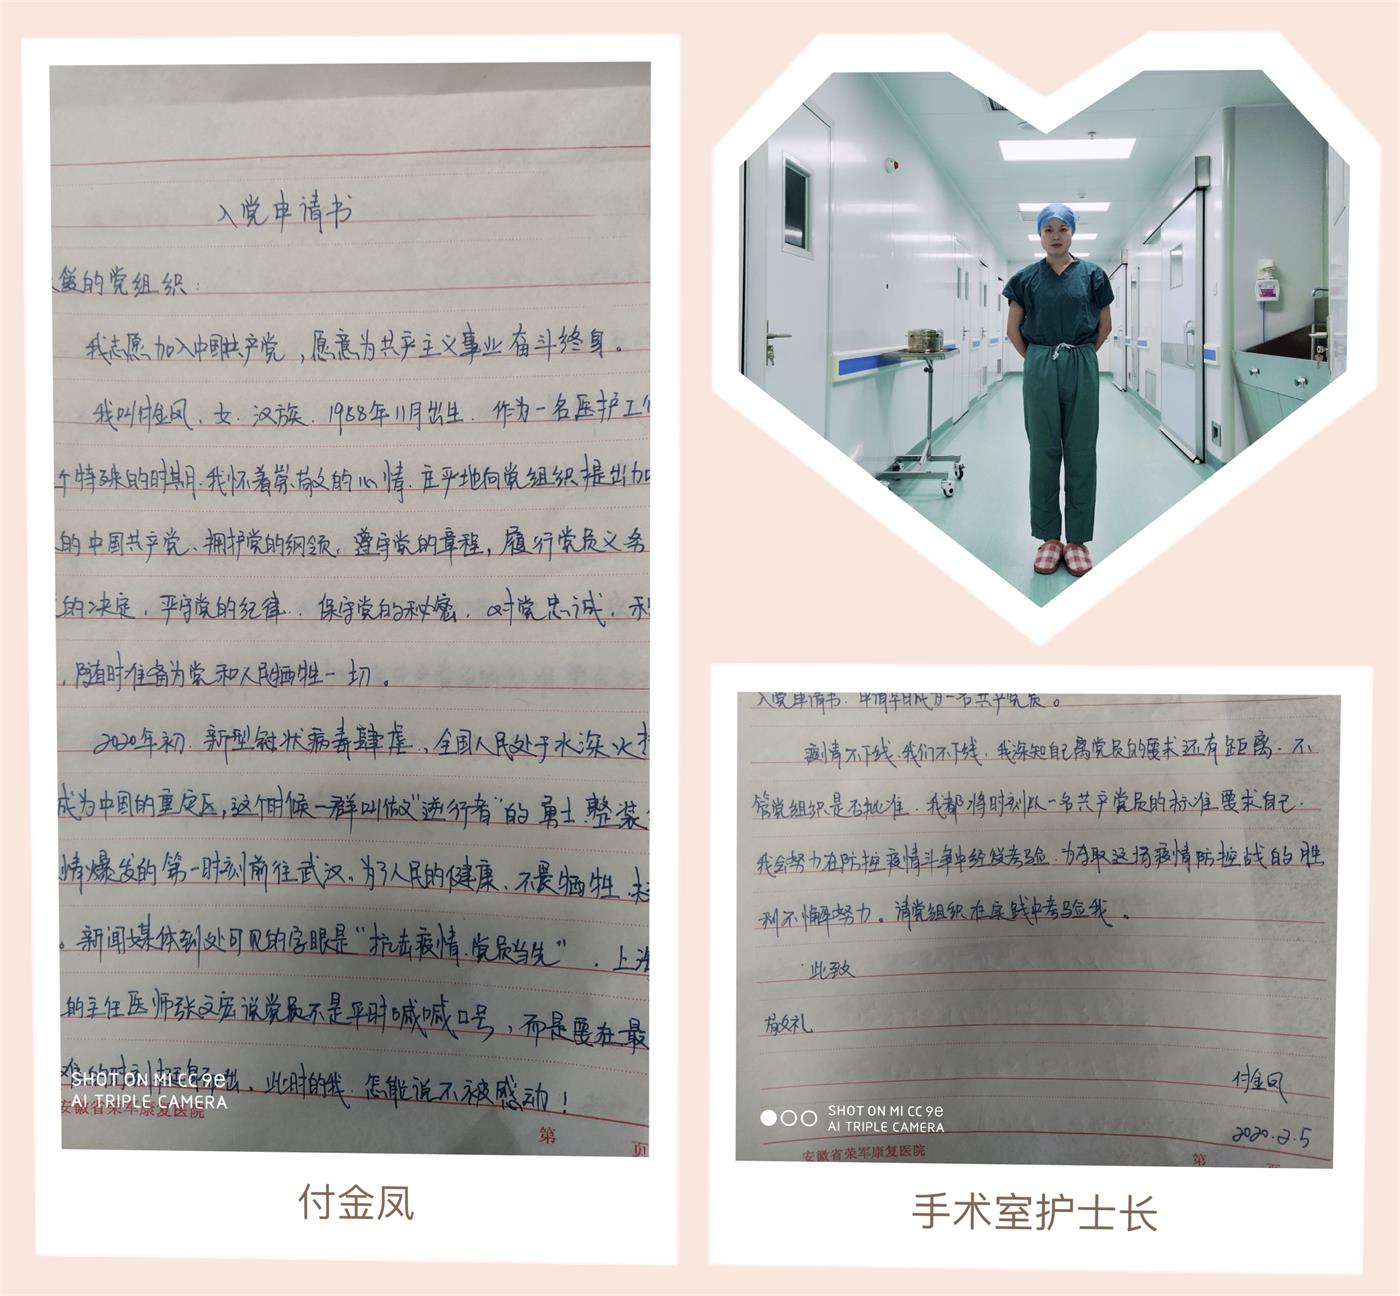 入党申请书
的党组织：
我志愿加入中国共产党，愿意为共产主义事业奋斗终身。
我叫付金凤、女、汉族、1988年11月出生．作为一名医护工
个特殊的时期．我怀着崇敬的心情．庄严地向党组织提出加
的中国共产党、拥护党的纲领，遵守党的章程，履行党员义务
的决定，严守党的纪律．保守党的秘密．对党忠诚．
，随时准备为党和人民牺牲一切。
2020年初．新型冠状病毒肆虐、全国人民处于水深火
成为中国的重灾区，这个时候一群叫做“逆行者”的勇士整装
情爆发的第一时刻前往武汉。为了人民的健康、不畏牺牲．
。新闻媒体到处可见的字眼是“抗击疫情．党员当先”．上海
的主任医师张文宏说党员不是平时喊喊口号，而是要在最
难的时刻挺身而出．此时的我．怎能说不被感动！
SHOT ON MI CC 9e
AI TRIPLE CAMERA
安徽省荣军康复医院
第 页
付金凤
入党申请书．申请早日成为一名共产党员。
疫情不下线．我们不下线．我深知自己离党员的要求还有距离．不
管党组织是否批准．我都将时刻以一名共产党员的标准要求自己．
我会努力在防控疫情斗争中经受考验．为夺取这场疫情防控战的胜
利不懈努力。请党组织在实践中考验我。
此致
敬礼
付金凤
2020.2.5
SHOT ON MI CC 9e
AI TRIPLE CAMERA
安徽省荣军康复医院
第 页
手术室护士长